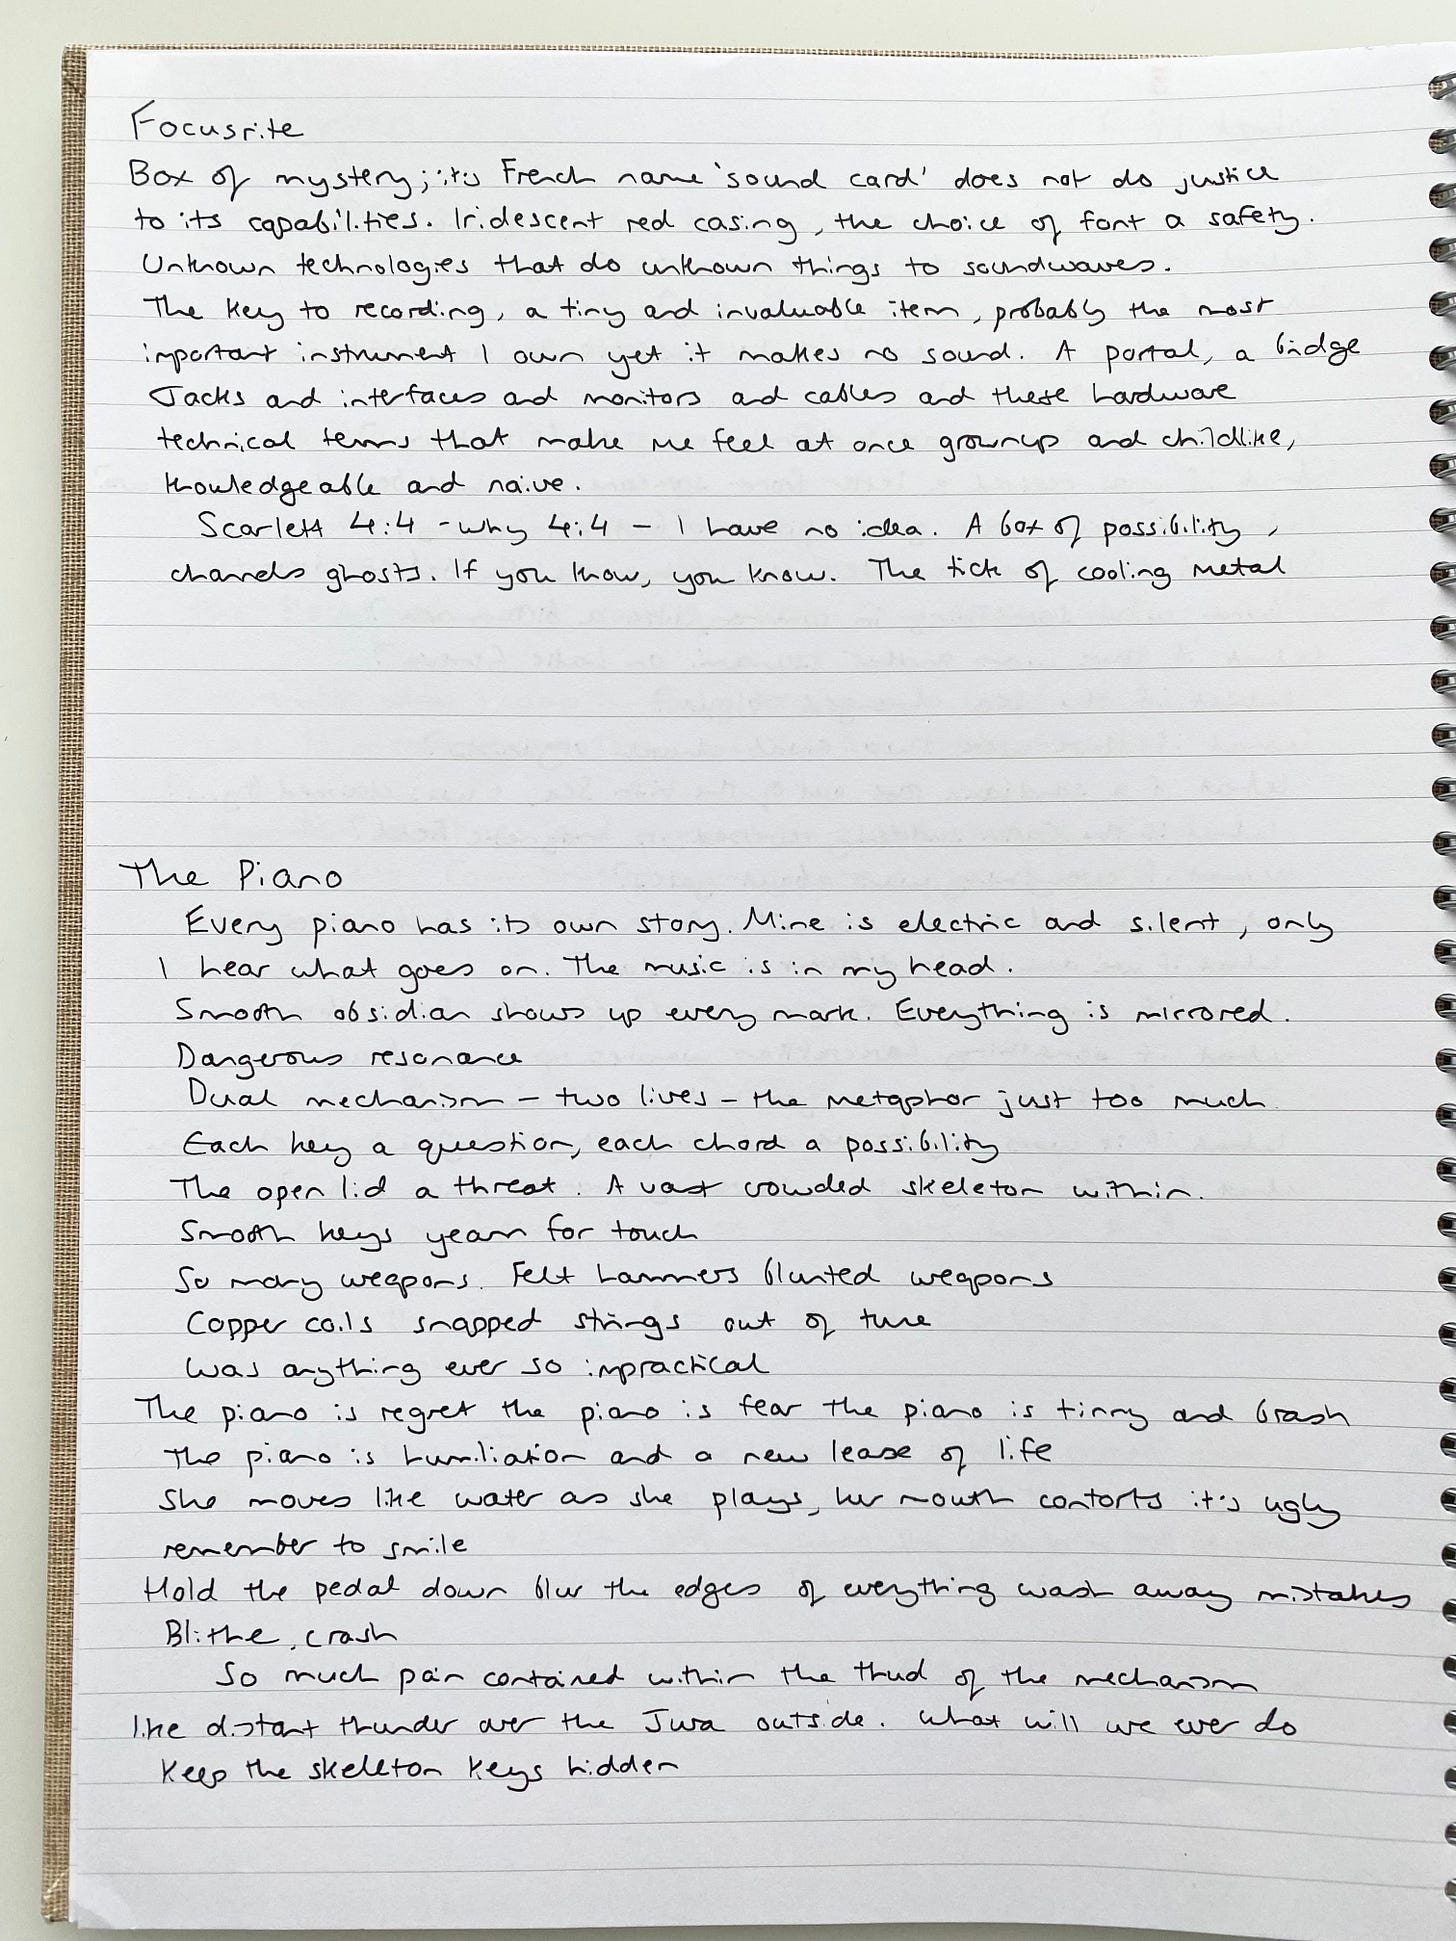 Focusrite
Box of mystery; its French name 'sound card' does not do justice
to its capabilities. Iridescent red casing, the choice of font a safety.
Unknown technologies that do unknown things to soundwaves.
The key to recording, a tiny and invaluable item, probably the most
important instrument I own yet it makes no sound. A portal, a bridge
Jacks and interfaces and monitors and cables and these hardware
technical terms that make me feel at once grownup and childlike,
knowledgeable and naive.
Scarlett 4:4 - why 4:4 - I have no idea. A box of possibility,
channels ghosts. If you know, you know. The tick of cooling metal
The Piano
Every piano has its own story. Mine is electric and silent, only
I hear what goes on. The music is in my head.
Smooth obsidian shows up every mark. Everything is mirrored.
Dangerous resonance
Dual mechanism - two lives - the metaphor just too much
Each key a question, each chord a possibility
The open lid a threat. A vast crowded skeleton within.
Smooth keys yearn for touch
So many weapons. Felt hammers blunted weapons
Copper coils snapped strings out of tune
Was anything ever so impractical
The piano is regret the piano is fear the piano is tinny and brash
The piano is humiliation and a new lease of life
She moves like water as she plays, her mouth contorts it's ugly
remember to smile
Hold the pedal down blur the edges of everything wash away mistakes
Blithe, crash
So much pain contained within the thud of the mechanism
like distant thunder over the Jura outside. What will we ever do
Keep the skeleton keys hidden